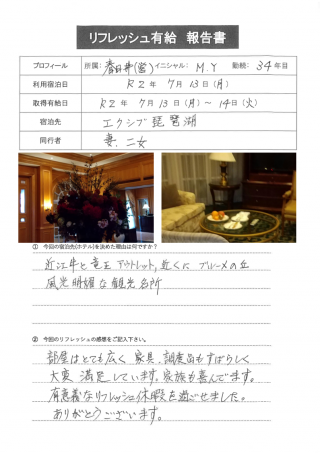 リフレッシュ有給 報告書
プロフィール 所属: 春日井(営) イニシャル: M.Y 勤続: 34年目
利用宿泊日 R2年 7月13日(月)
取得有給日 R2年 7月13日(月)～14日(火)
宿泊先 エクシブ琵琶湖
同行者 妻、二女
① 今回の宿泊先(ホテル)を決めた理由は何ですか?
近江牛と竜王アウトレット,近くにブルーメの丘
風光明媚な観光名所
② 今回のリフレッシュの感想をご記入下さい。
部屋はとても広く 家具、調度品もすばらしく
大変満足しています。家族も喜んでます。
有意義なリフレッシュ休暇を過ごせました。
ありがとうございます。